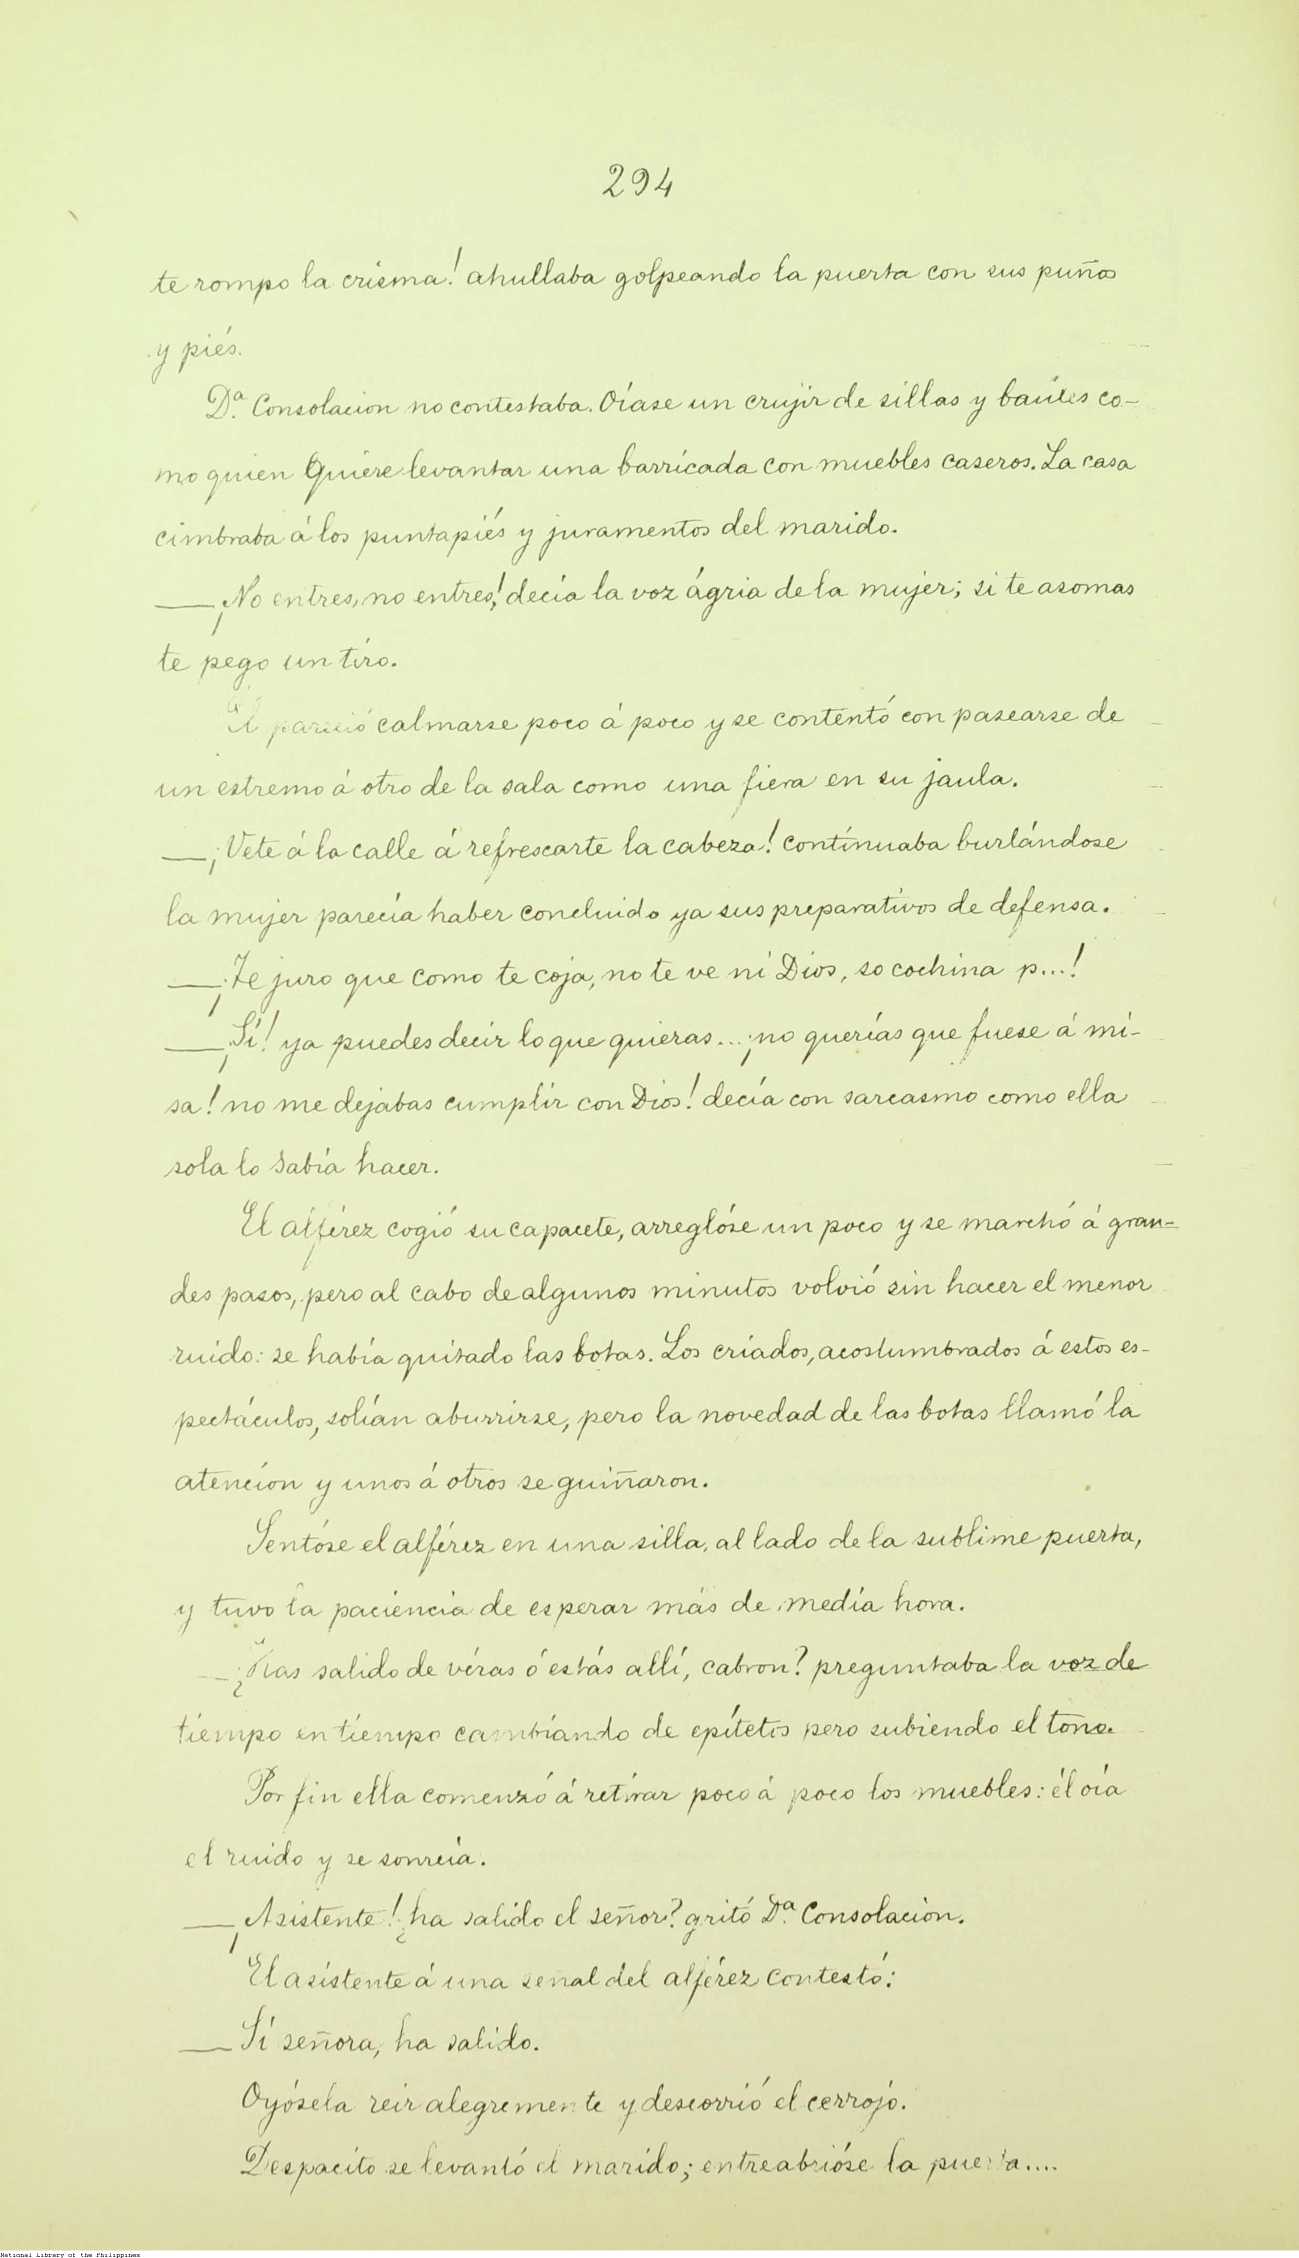 294
te rompo la crisma! ahullaba golpeando la puerta con sus puños
y piés.
D.ª Consolacion no contestaba. Oíase un crujir de sillas y baúles co-
mo quien quiere levantar una barricada con muebles caseros. La casa
cimbraba á los puntapiés y juramentos del marido.
—¡No entres, no entres! decía la voz ágria de la mujer; si te asomas
te pego un tiro.
El pareció calmarse poco á poco y se contentó con pasearse de
un estremo á otro de la sala como una fiera en su jaula.
—¡Vete á la calle á refrescarte la cabeza! continuaba burlándose
la mujer parecía haber concluido ya sus preparativos de defensa.
—¡Te juro que como te coja, no te ve ni Dios, so cochina p...!
—¡Sí! ya puedes decir lo que quieras...¡no querías que fuese á mi-
sa! no me dejabas cumplir con Dios! decía con sarcasmo como ella
sola lo sabía hacer.
El alférez cogió su capacete, arreglóse un poco y se marchó á gran-
des pasos, pero al cabo de algunos minutos volvió sin hacer el menor
ruido: se había quitado las botas. Los criados, acostumbrados á estos es-
pectáculos, solían aburrirse, pero la novedad de las botas llamó la
atencion y unos á otros se guiñaron.
Sentóse el alférez en una silla, al lado de la sublime puerta,
y tuvo la paciencia de esperar más de media hora.
—¿Has salido de véras ó estás allí, cabron? preguntaba la voz de
tiempo en tiempo cambiando de epítetos pero subiendo el tono.
Por fin ella comenzó á retirar poco á poco los muebles: él oía
el ruido y se sonreía.
—¡Asistente! ¿ha salido el señor? gritó D.ª Consolacion.
El asistente á una señal del alférez contestó:
—Sí señora, ha salido.
Oyósela reir alegremente y descorrió el cerrojo.
Despacito se levantó el marido; entreabrióse la puerta....
National Library of the Philippines